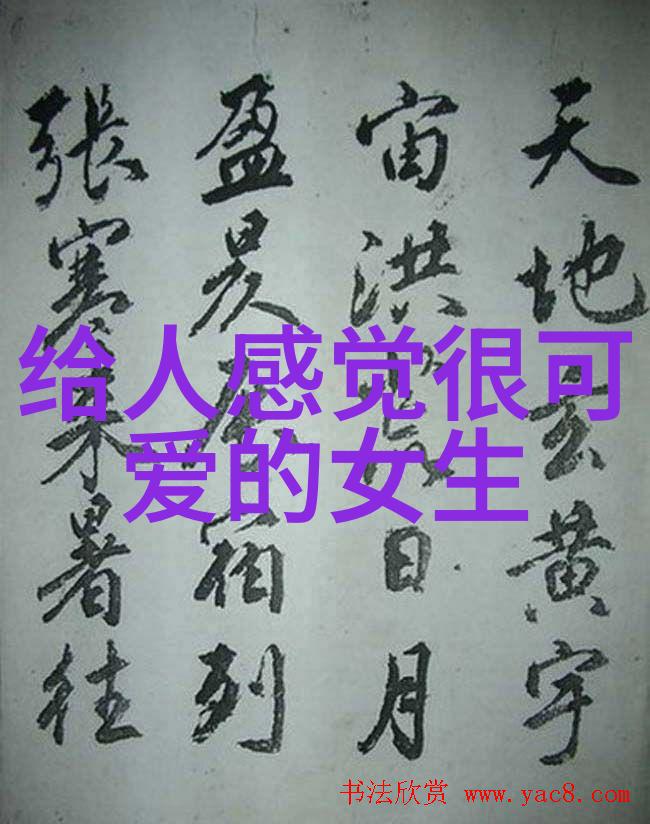 天地玄黄宇
宙洪荒日月
盈昃辰宿列
張寒来暑往
给人感觉很可
爱的女生
书法欣赏 www.yac8.com